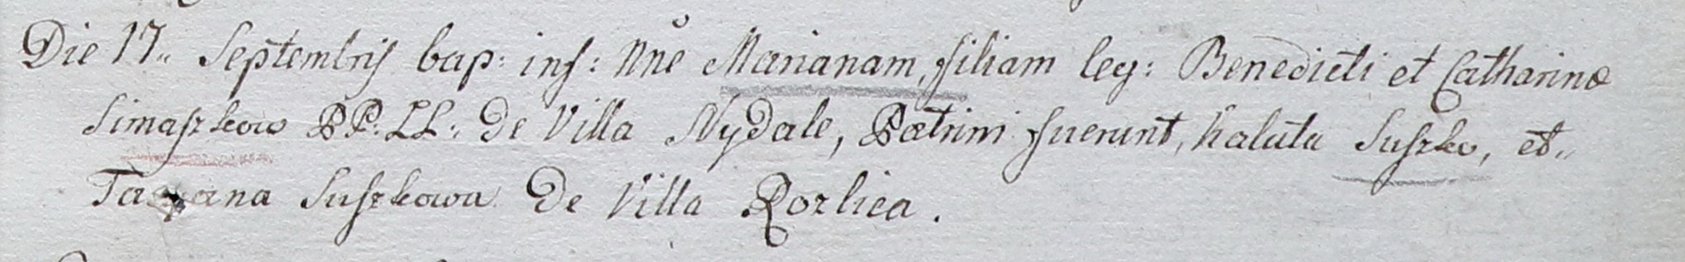 Die 17.. Septembris bap: inf: Nne Marianam, filiam leg: Benedicti et Catharinæ
Simaszkow PP: LL: de Villa Nydale, Patrini fuerunt, Kaluta Suszko, et..
Suszkowa De Villa Rozlica.